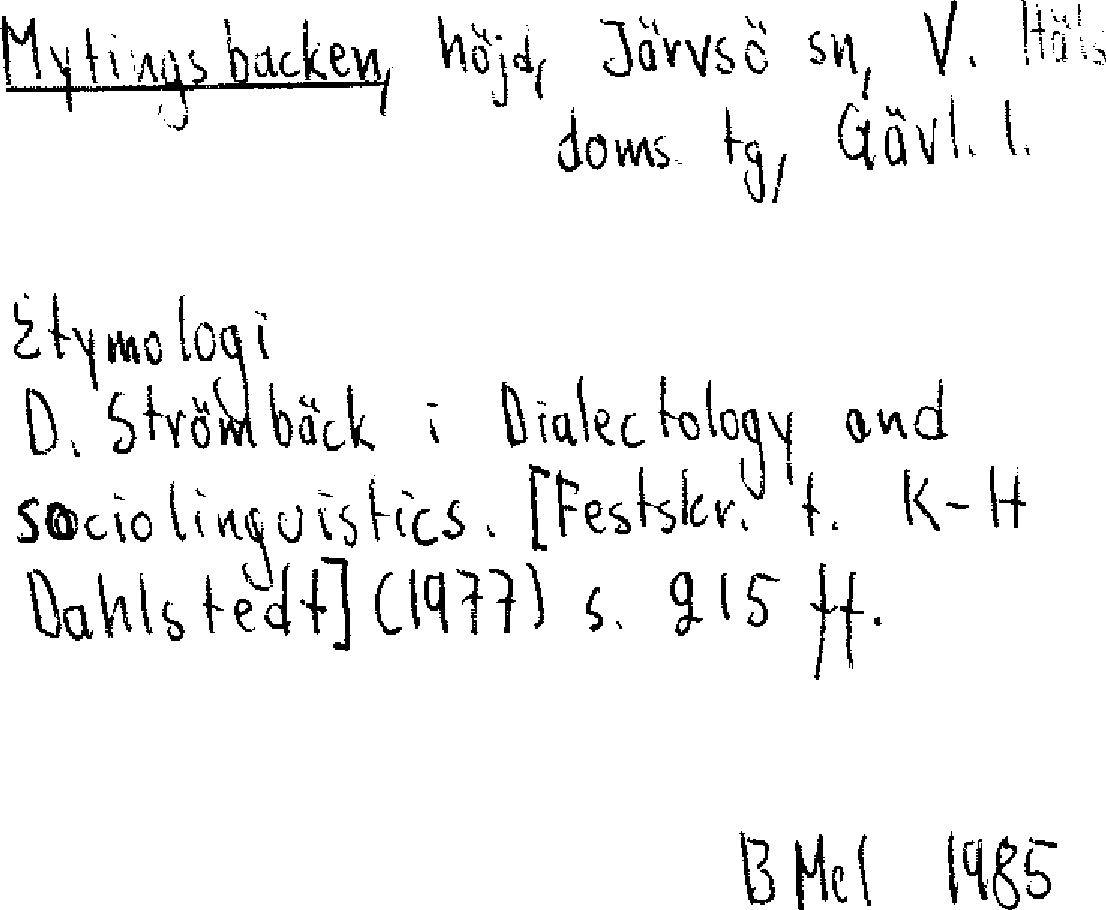 Mytingsbacken, höjd, Järvsö sn, V. Häls
doms. tg, Gävl. l.
Etymologi
D. Strömbäck i Dialectology and
sociolinguistics. [Festskr. t. K-H
Dahlstedt] (1977) s. 215 ff.
B Mel 1985